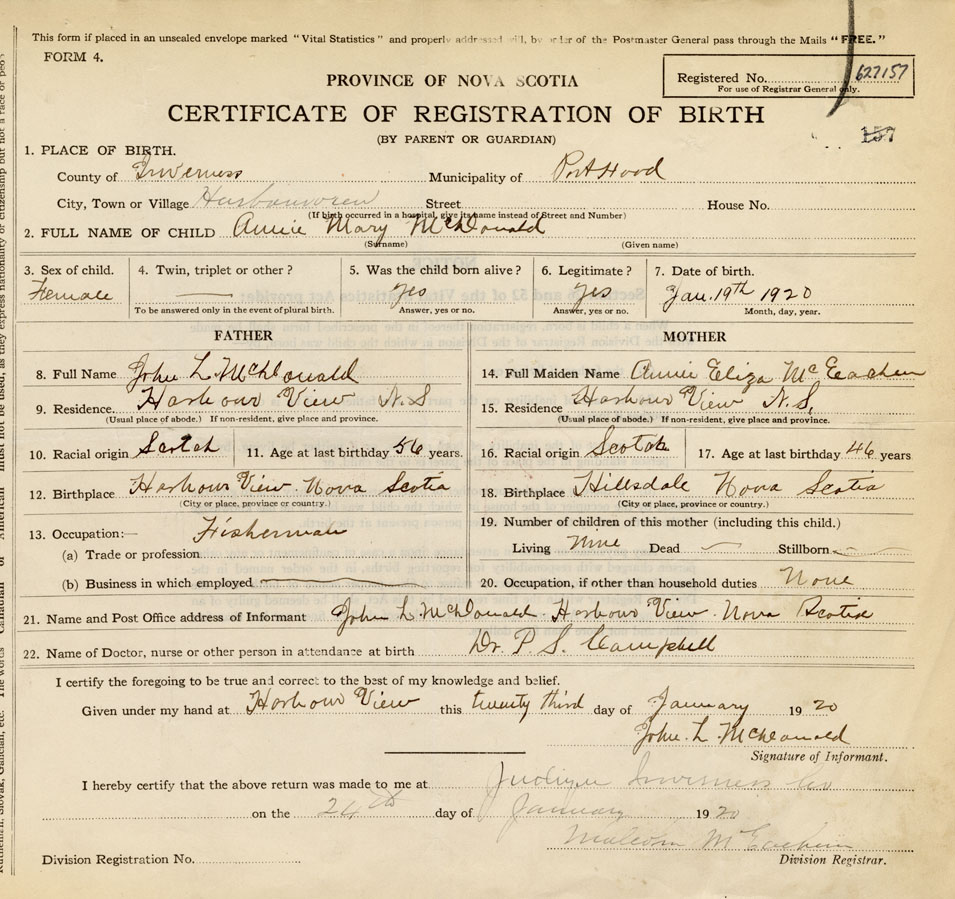 This form if placed in an unsealed envelope marked "Vital Statistics" and properly addressed will, by order of the Postmaster General pass through the Mails "FREE."
FORM 4.
PROVINCE OF NOVA SCOTIA
Registered No. 627157
For use of Registrar General only.
CERTIFICATE OF REGISTRATION OF BIRTH
(BY PARENT OR GUARDIAN)
157
1. PLACE OF BIRTH.
County of Inverness Municipality of Port Hood
City, Town or Village Street House No.
(If birth occurred in a hospital, give its name instead of Street and Number)
2. FULL NAME OF CHILD Annie Mary McDonald
(Surname) (Given name)
3. Sex of child. Female
4. Twin, triplet or other? —
To be answered only in the event of plural birth.
5. Was the child born alive? yes
Answer, yes or no.
6. Legitimate? yes
Answer, yes or no.
7. Date of birth. Jan. 19th 1920
Month, day, year.
FATHER
8. Full Name John L McDonald
9. Residence. Harbour View N.S
(Usual place of abode.) If non-resident, give place and province.
10. Racial origin Scotch 11. Age at last birthday 56 years.
12. Birthplace Harbour View Nova Scotia
(City or place, province or country.)
13. Occupation:— Fisherman
(a) Trade or profession
(b) Business in which employed
MOTHER
14. Full Maiden Name Annie Eliza McEachen
15. Residence Harbour View N.S.
(Usual place of abode.) If non-resident, give place and province.
16. Racial origin Scotch 17. Age at last birthday 46 years
18. Birthplace Hillsdale Nova Scotia
(City or place, province or country.)
19. Number of children of this mother (including this child.)
Living Nine Dead — Stillborn —
20. Occupation, if other than household duties None
21. Name and Post Office address of Informant John L McDonald Harbour View Nova Scotia
22. Name of Doctor, nurse or other person in attendance at birth Dr. P. S. Campbell
I certify the foregoing to be true and correct to the best of my knowledge and belief.
Given under my hand at Harbour View this twenty third day of January 1920
John L McDonald
Signature of Informant.
I hereby certify that the above return was made to me at Judique Inverness Co
on the 24th day of January 1920
Malcolm McEachern
Division Registration No.
Division Registrar.